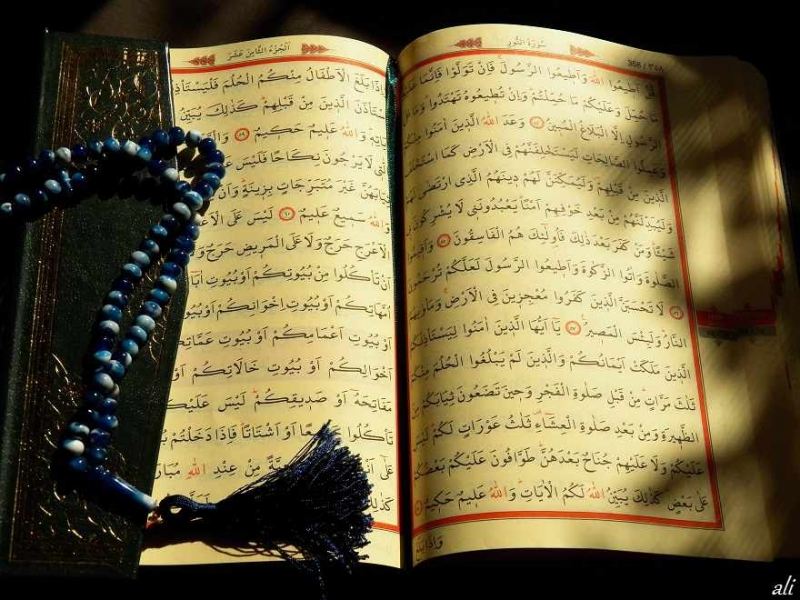 سُورَةُ النُّورِ
قُلْ اَطِيعُوا اللهَ وَاَطِيعُوا الرَّسُولَ فَاِنْ تَوَلَّوْا فَاِنَّمَا
مَا حُمِّلَ وَعَلَيْكُمْ مَا حُمِّلْتُمْ وَاِنْ تُطِيعُوهُ تَهْتَدُوا وَمَا
الرَّسُولِ اِلَّا الْبَلَاغُ الْمُبِينُ ﴿٥٤﴾ وَعَدَ اللهُ الَّذِينَ اٰمَنُوا
وَعَمِلُوا الصَّالِحَاتِ لَيَسْتَخْلِفَنَّهُمْ فِي الْاَرْضِ كَمَا
الَّذِينَ مِنْ قَبْلِهِمْ وَلَيُمَكِّنَنَّ لَهُمْ دِينَهُمُ الَّذِي ارْتَضٰى
وَلَيُبَدِّلَنَّهُمْ مِنْ بَعْدِ خَوْفِهِمْ اَمْنًا يَعْبُدُونَنِي لَا يُشْرِكُونَ
شَيْئًا وَمَنْ كَفَرَ بَعْدَ ذٰلِكَ فَاُولٰئِكَ هُمُ الْفَاسِقُونَ ﴿٥٥﴾
الصَّلٰوةَ وَاٰتُوا الزَّكٰوةَ وَاَطِيعُوا الرَّسُولَ لَعَلَّكُمْ تُرْحَمُونَ
﴿٥٦﴾ لَا تَحْسَبَنَّ الَّذِينَ كَفَرُوا مُعْجِزِينَ فِي الْاَرْضِ وَمَأْوٰيهُمُ
النَّارُ وَلَبِئْسَ الْمَصِيرُ ﴿٥٧﴾ يَا اَيُّهَا الَّذِينَ اٰمَنُوا
الَّذِينَ مَلَكَتْ اَيْمَانُكُمْ وَالَّذِينَ لَمْ يَبْلُغُوا الْحُلُمَ مِنْكُمْ
ثَلٰثَ مَرَّاتٍ مِنْ قَبْلِ صَلٰوةِ الْفَجْرِ وَحِينَ تَضَعُونَ ثِيَابَكُمْ
الظَّهِيرَةِ وَمِنْ بَعْدِ صَلٰوةِ الْعِشَاءِ ثَلٰثُ عَوْرَاتٍ لَكُمْ لَيْسَ
عَلَيْكُمْ وَلَا عَلَيْهِمْ جُنَاحٌ بَعْدَهُنَّ طَوَّافُونَ عَلَيْكُمْ بَعْضُكُمْ
عَلٰى بَعْضٍ كَذٰلِكَ يُبَيِّنُ اللهُ لَكُمُ الْاٰيَاتِ وَاللهُ عَلِيمٌ حَكِيمٌ ﴿٥٨﴾
اَلْجُزْءُ الثَّامِنَ عَشَرَ
وَاِذَا بَلَغَ الْاَطْفَالُ مِنْكُمُ الْحُلُمَ
اسْتَأْذَنَ الَّذِينَ مِنْ قَبْلِهِمْ كَذٰلِكَ يُبَيِّنُ
اٰيَاتِهِ وَاللهُ عَلِيمٌ حَكِيمٌ ﴿٥٩﴾
لَا يَرْجُونَ نِكَاحًا فَلَيْسَ
ثِيَابَهُنَّ غَيْرَ مُتَبَرِّجَاتٍ بِزِينَةٍ وَاَنْ
وَاللهُ سَمِيعٌ عَلِيمٌ ﴿٦٠﴾ لَيْسَ عَلَى
الْاَعْرَجِ حَرَجٌ وَلَا عَلَى الْمَرِيضِ حَرَجٌ
اَنْ تَأْكُلُوا مِنْ بُيُوتِكُمْ اَوْ بُيُوتِ
اُمَّهَاتِكُمْ اَوْ بُيُوتِ اِخْوَانِكُمْ اَوْ
اَوْ بُيُوتِ اَعْمَامِكُمْ اَوْ بُيُوتِ
اَخْوَالِكُمْ اَوْ بُيُوتِ خَالَاتِكُمْ اَوْ
مَفَاتِحَهُ اَوْ صَدِيقِكُمْ لَيْسَ عَلَيْكُمْ
تَأْكُلُوا جَمِيعًا اَوْ اَشْتَاتًا فَاِذَا دَخَلْتُمْ
مِنْ عِنْدِ اللهِ
ali